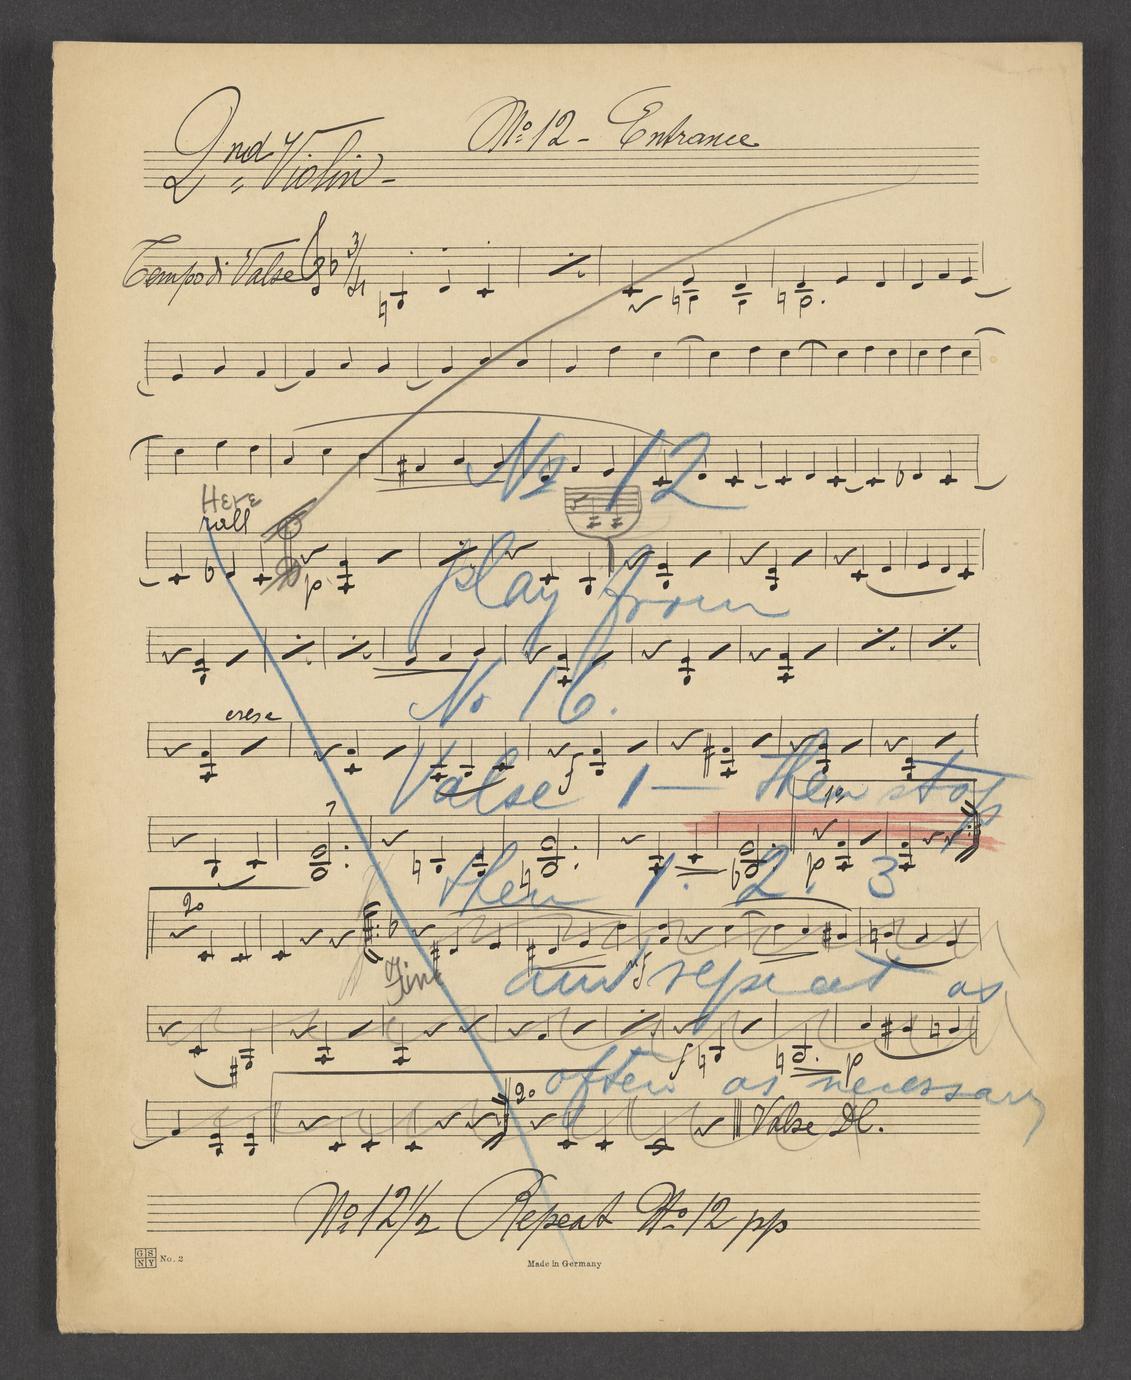 No. 12 - Entrance
2nd Violin -
Tempo di Valse 3/4
No 12
Here
rall
p
play from
No 16.
cresc
f
Valse 1 — then stop
1o
7
p
then 1. 2. 3
2o
Fine
and repeat as
f
p
often as necessary
2o
Valse DC.
No. 12 1/2 Repeat No. 12 pp
GSNY No. 2
Made in Germany